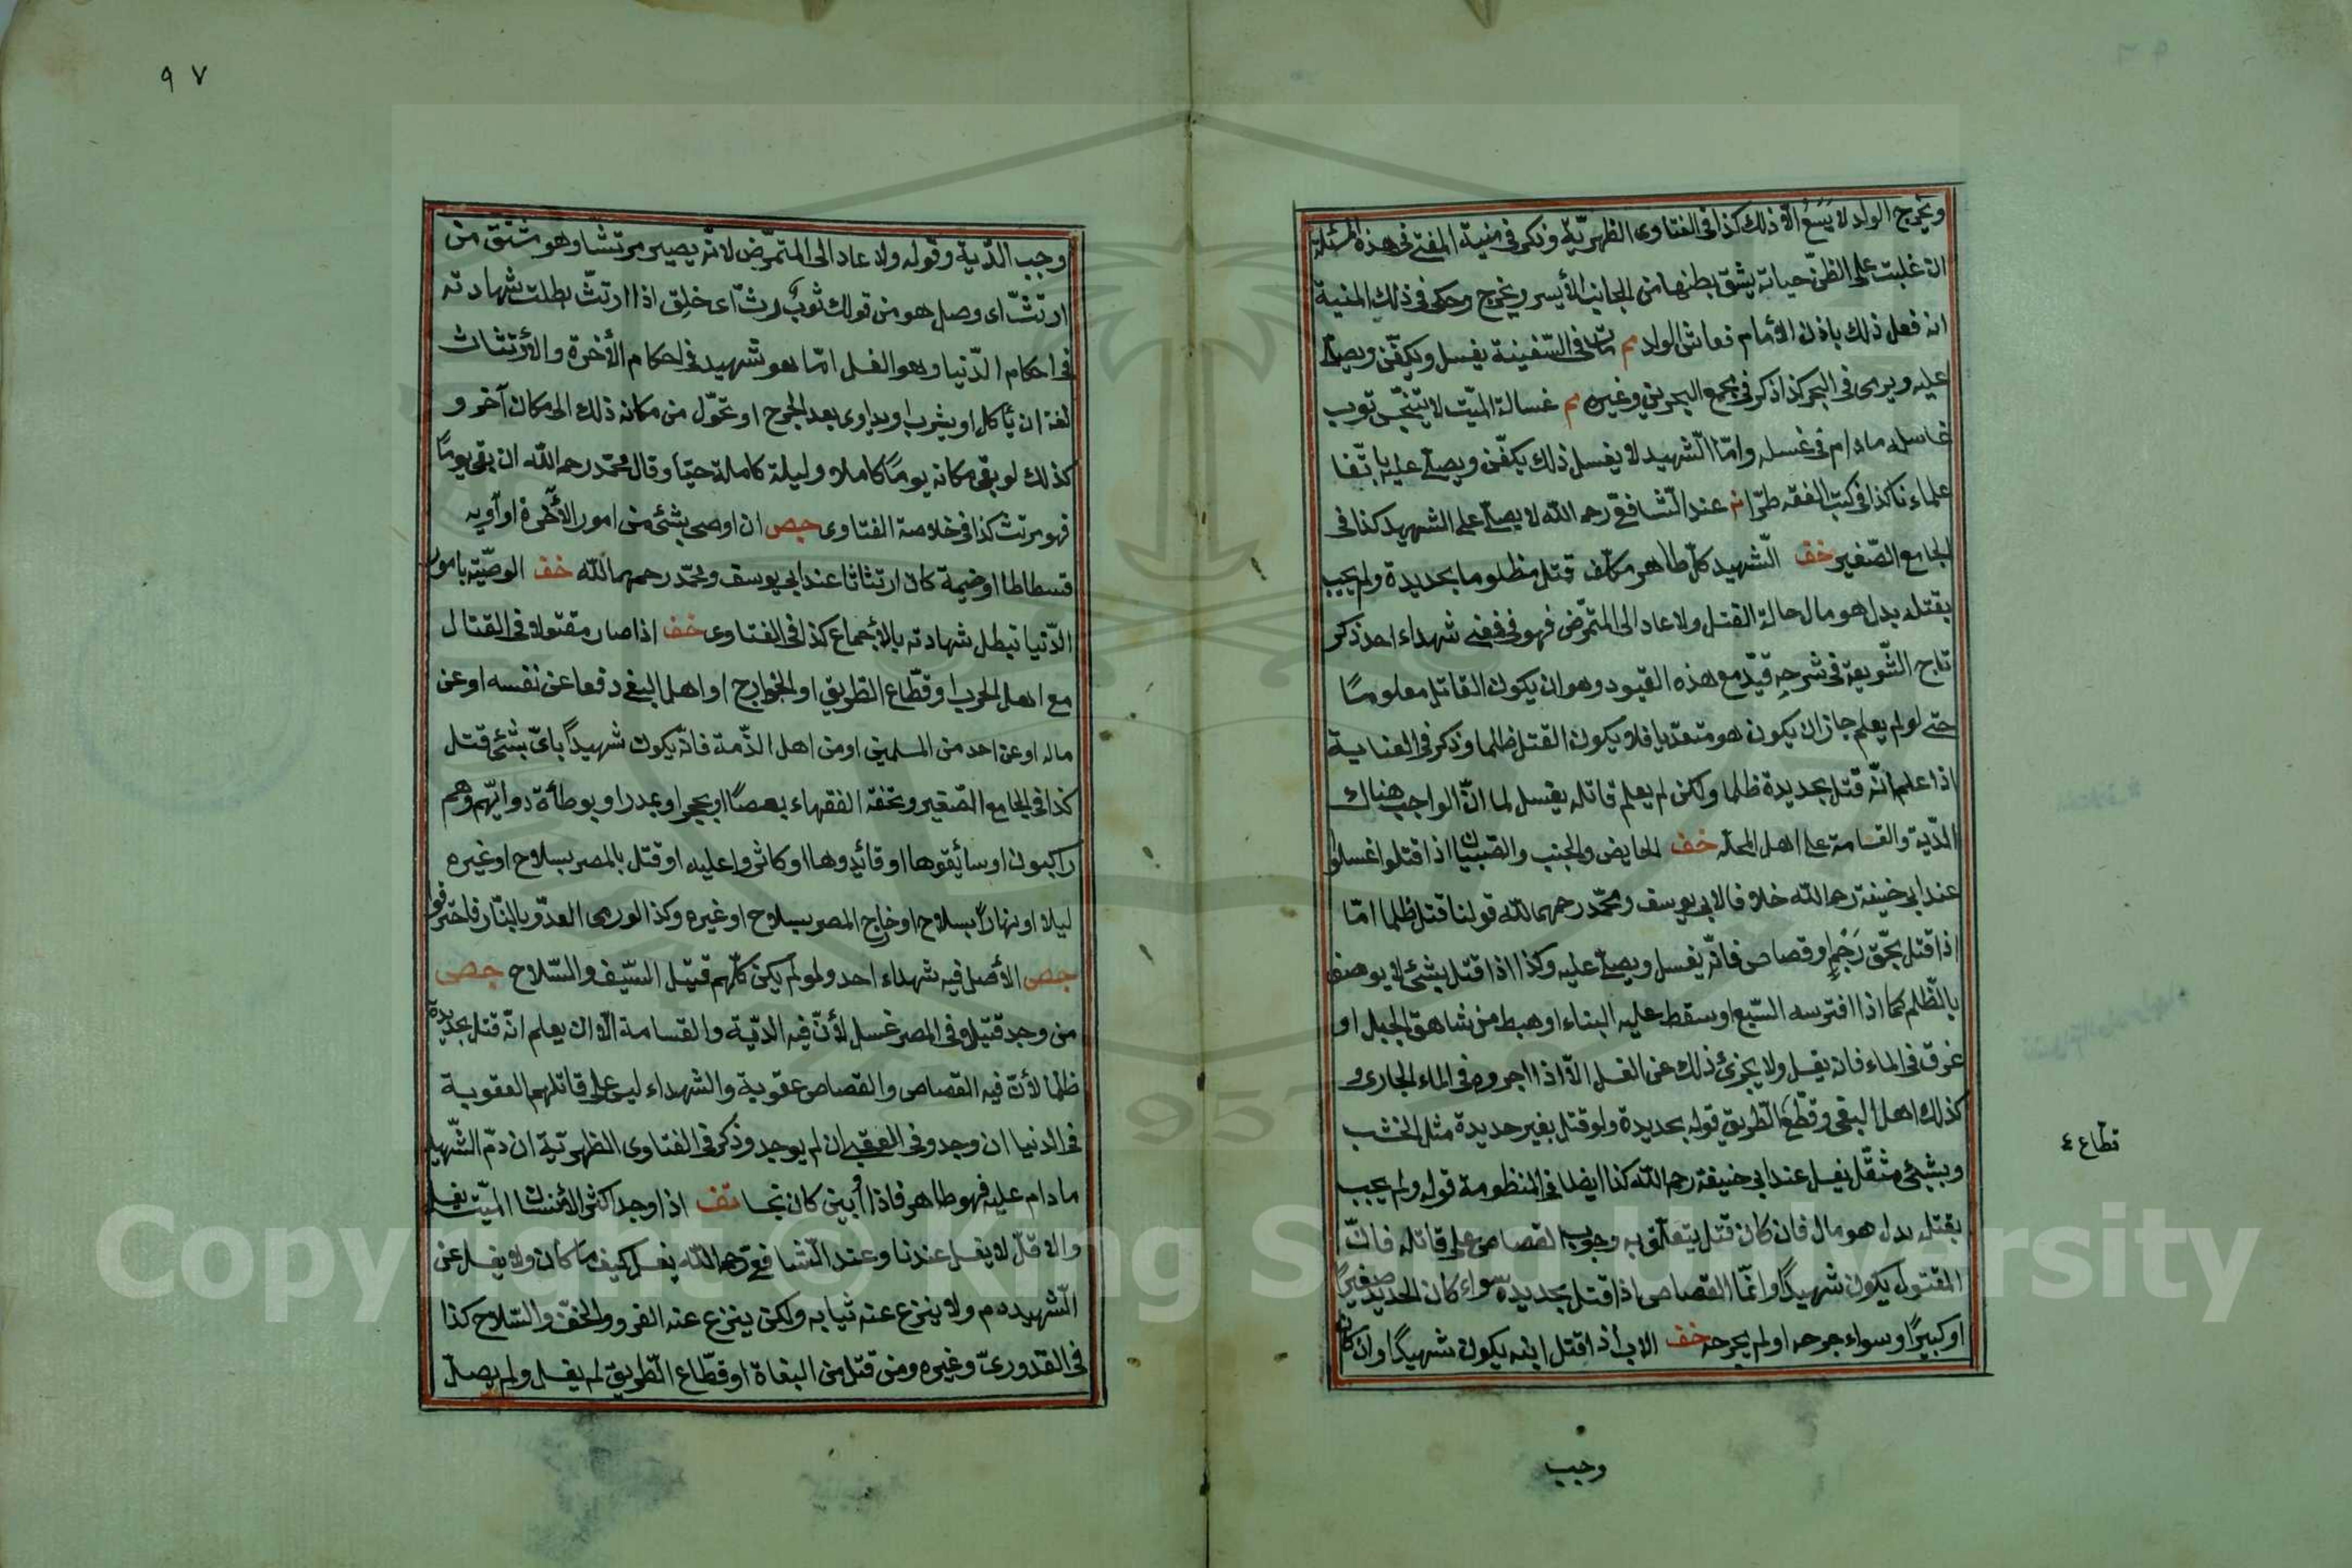 ويخرج الولد لا يسع الا ذلك كذا فى الفتاوى الظهرية وذكر فى منية المفتى فى هذه المسئلة
ان غلبت على الظن حياته يشق بطنها من الجانب الأيسر ويخرج وحكى فى ذلك المنية
انه فعل ذلك باذن الأمام فعاش الولد م مات فى السفينة يغسل ويكفن ويصلى
عليه ويرمى فى البحر كذا ذكر فى مجمع البحرين وغيره م غسالة الميت لا يتنجس ثوب
غاسله مادام فى غسله واما الشهيد لا يغسل ذلك يكفن ويصلى عليه باتفا
علماءنا كذا فى كتب الفقه طرا عند الشافعى رحمه الله لا يصلى على الشهيد كذا فى
الجامع الصغير خف الشهيد كل طاهر مكلف قتل مظلوما بحديدة ولم يجب
بقتله بدل هو مال حالة القتل ولا عاد الى المتمرض فهو فى معنى شهداء احد ذكر
تاج الشريعة فى شرحه قيد مع هذه القيود وهو ان يكون القاتل معلومًا
حتى لو لم يعلم جاز ان يكون هو متعديا فلا يكون القتل ظلما وذكر فى العناية
اذا علم انه قتل بحديدة ظلما ولكن لم يعلم قاتله يغسل لما ان الواجب هناك
الدية والقسامة على اهل المحلة خف الحايض والجنب والصبيان اذا قتلوا غسلوا
عند ابى حنيفة رحمه الله خلافا لابى يوسف ومحمد رحمهما الله قولنا قتل ظلما اما
اذا قتل بحق رجم او قصاص فانه يغسل ويصلى عليه وكذا اذا قتل بشئ لا يوصف
بالظلم كما اذا افترسه السبع او سقط عليه البناء او هبط من شاهق الجبل او
غرق فى الماء فانه يغسل ولا يجزئ ذلك عن الغسل الا اذا اجروه فى الماء الجارى و
كذلك اهل البغى وقطع الطريق قوله بحديدة ولو قتل بغير حديدة مثل الخشب
وبشئ مثقل يغسل عند ابى حنيفة رحمه الله كذا ايضا فى المنظومة قوله ولم يجب
بقتله بدل هو مال فان كان قتل يتعلق به وجوب القصاص على قاتله فان
المقتول يكون شهيدًا وانما القصاص اذا قتل بحديدة سواء كان الحديد صغيرًا
او كبيرًا وسواء جرحه او لم يجرحه خف الاب اذا قتل ابنه يكون شهيدًا وان كان
قطاع ٤
وجب
٩٧
وجب الدية وقوله ولا عاد الى المتمرض لانه يصير مرتثا وهو مشتق من
ارتث اى وصل هو من قولك ثوب رث اى خلق اذا ارتث بطلت شهادته
فى احكام الدنيا وهو الغسل اما هو شهيد فى احكام الأخرة والأرتثاث
لغة ان يأكل او يشرب او يداوى بعد الجرح او تحول من مكانه ذلك الى مكان آخر و
كذلك لو بقى مكانه يومًا كاملا وليلة كاملة حيا وقال محمد رحمه الله ان بقى يومًا
فهو مرتث كذا فى خلاصة الفتاوى جص ان اوصى بشئ من امور الأخرة او آويه
فسطاطا او خيمة كان ارتثاثا عند ابى يوسف ومحمد رحمهما الله خف الوصية بامور
الدنيا تبطل شهادته بالأجماع كذا فى الفتاوى خف اذا صار مقتولا فى القتال
مع اهل الحرب او قطاع الطريق او الخوارج او اهل البغى دفعا عن نفسه او عن
ماله او عن احد من المسلمين او من اهل الذمة فانه يكون شهيدًا باى شئ قتل
كذا فى الجامع الصغير وتحفة الفقهاء بعصًا او بحجر او بمدر او بوطأة دوابهم وهم
راكبون او سائقوها او قائدوها او كاثروا عليه او قتل بالمصر بسلاح او غيره
ليلا او نهارًا بسلاح او خارج المصر بسلاح او غيره وكذا لو رمى العدو بالنار فاحترقوا
جص الأصل فيه شهداء احد ولو لم يكن كلهم قتيل السيف والسلاح جص
من وجد قتيلا فى المصر غسل لأن فيه الدية والقسامة الا ان يعلم انه قتل بحديدة
ظلما لأن فيه القصاص والقصاص عقوبة والشهداء ليس على قاتلهم العقوبة
فى الدنيا ان وجد وفى العقبى ان لم يوجد وذكر فى الفتاوى الظهرية ان دم الشهيد
مادام عليه فهو طاهر فاذا أبين كان نجسا تف اذا وجد اكثر الأنسان الميت يغسل
والا قل لا يغسل عندنا وعند الشافعى رحمه الله يغسل كيف ما كان ولا يغسل عن
الشهيد دم ولا ينزع عنه ثيابه ولكن ينزع عنه الفرو والخف والسلاح كذا
فى القدورى وغيره ومن قتل من البغاة او قطاع الطريق لم يغسل ولم يصل
Copyright © King Saud University
957